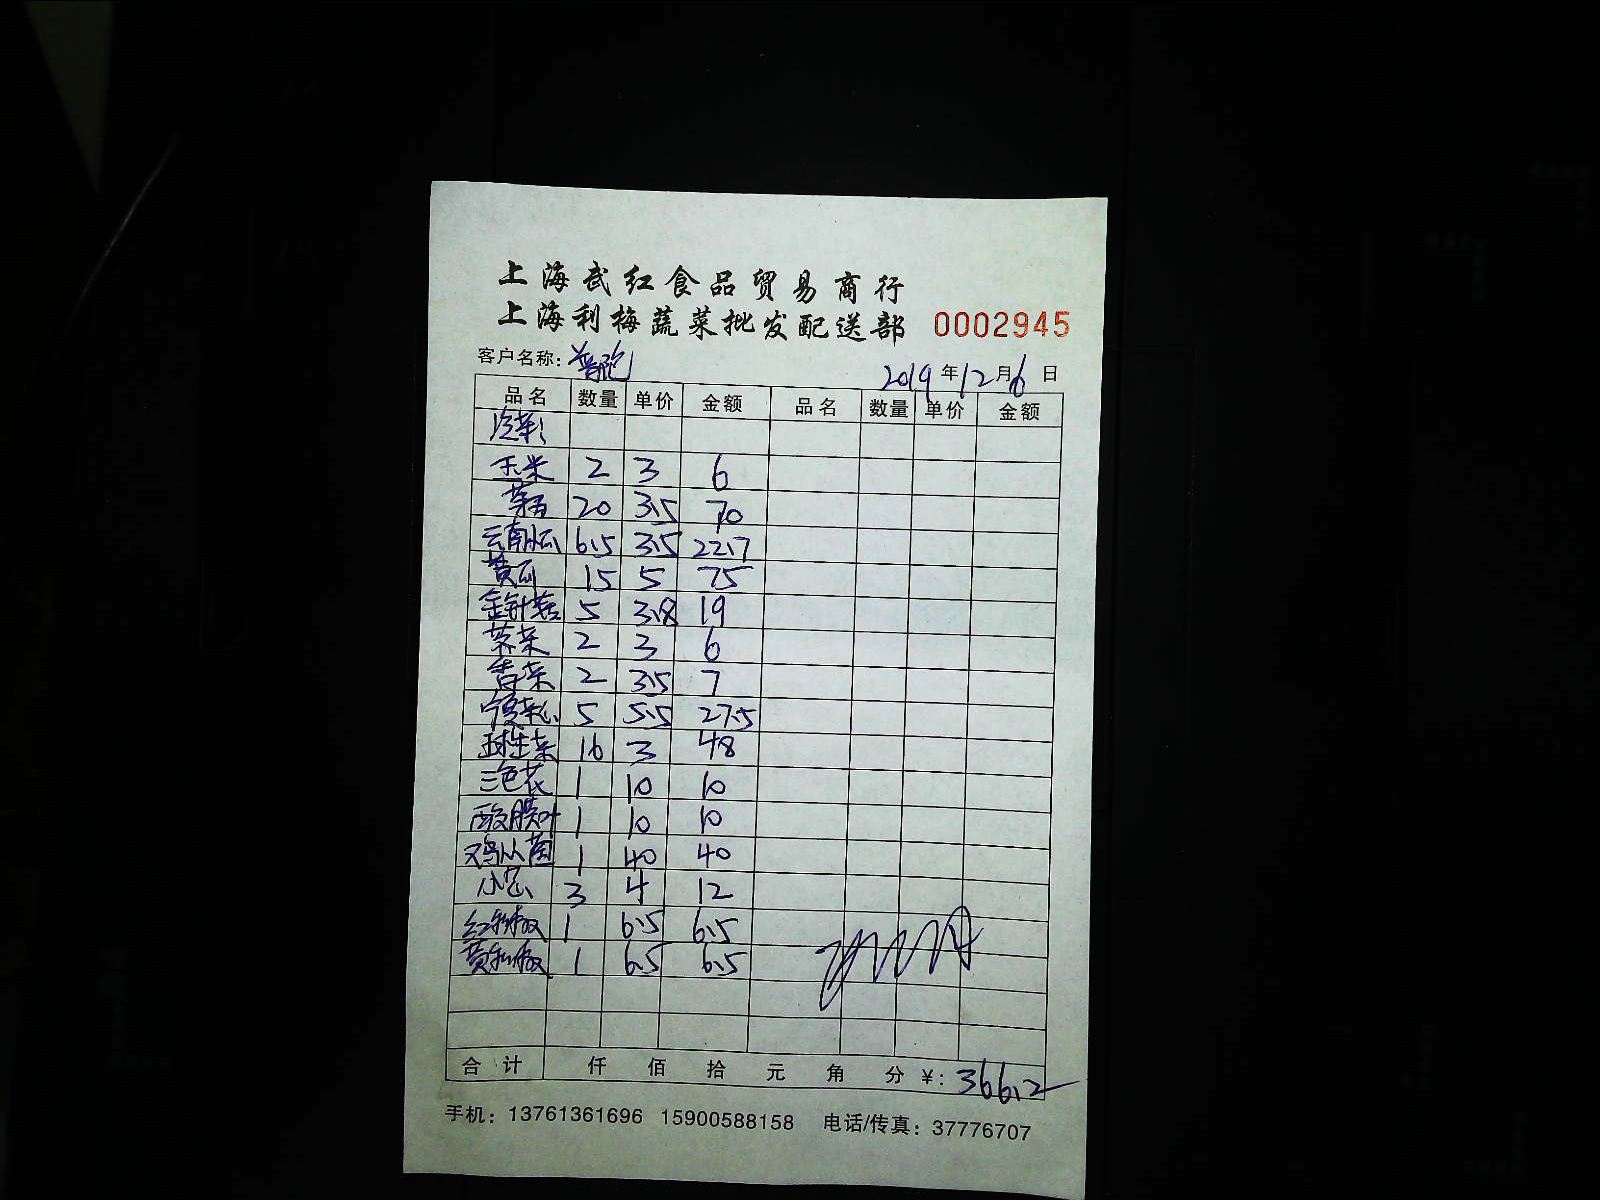 上海武红食品贸易商行
上海利梅蔬菜批发配送部 0002945
客户名称: 2019年12月6日
品名 数量 单价 金额 品名 数量 单价 金额
玉米 2 3 6
20 3.5 70
云南小瓜 6.5 3.5 22.7
黄瓜 15 5 75
金针菇 5 3.8 19
2 3 6
香菜 2 3.5 7
宁夏菜心 5 5.5 27.5
球生菜 16 3 48
三色花 1 10 10
酸膜叶 1 10 10
鸡从菌 1 40 40
小葱 3 4 12
红彩椒 1 6.5 6.5
黄彩椒 1 6.5 6.5
合计 仟 佰 拾 元 角 分 ¥: 366.2
手机: 13761361696 15900588158 电话/传真: 37776707